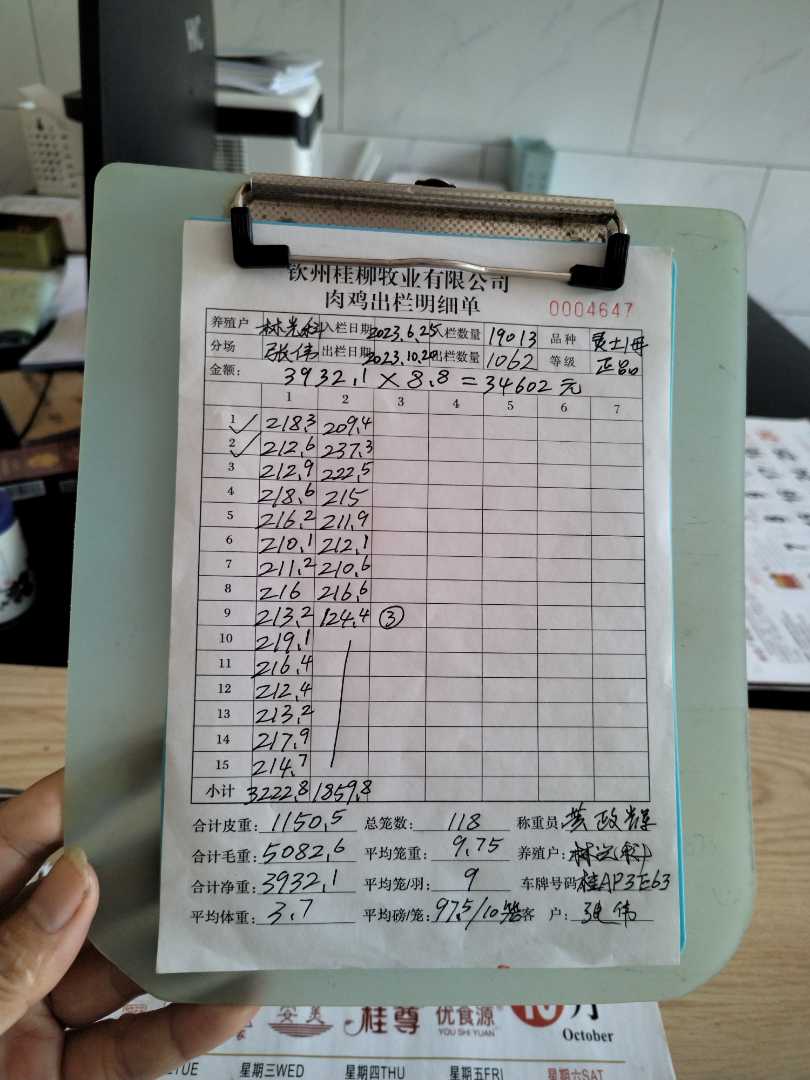 钦州桂柳牧业有限公司
肉鸡出栏明细单
0004647
养殖户 林光 入栏日期 2023.6.25 入栏数量 19013 品种
分场 张伟 出栏日期 2023.10.20 出栏数量 1062 等级 正品
金额: 3932.1 × 8.8 = 34602元
1 2 3 4 5 6 7
1 218.3 209.4
2 212.6 237.3
3 212.9 222.5
4 218.6 215
5 216.2 211.9
6 210.1 212.1
7 211.2 210.6
8 216 216.6
9 213.2 124.4 ③
10 219.1
11 216.4
12 212.4
13 213.2
14 217.9
15 214.7
小计 3222.8 1859.8
合计皮重: 1150.5 总笼数: 118 称重员: 黄政辉
合计毛重: 5082.6 平均笼重: 9.75 养殖户: 林
合计净重: 3932.1 平均笼/羽: 9 车牌号码: 桂AP3E63
平均体重: 3.7 平均磅/笼: 97.5/10笼 客户: 张伟
安美 桂尊 优食源 10月
YOU SHI YUAN October
TUE 星期三WED 星期四THU 星期五FRI 星期六SAT